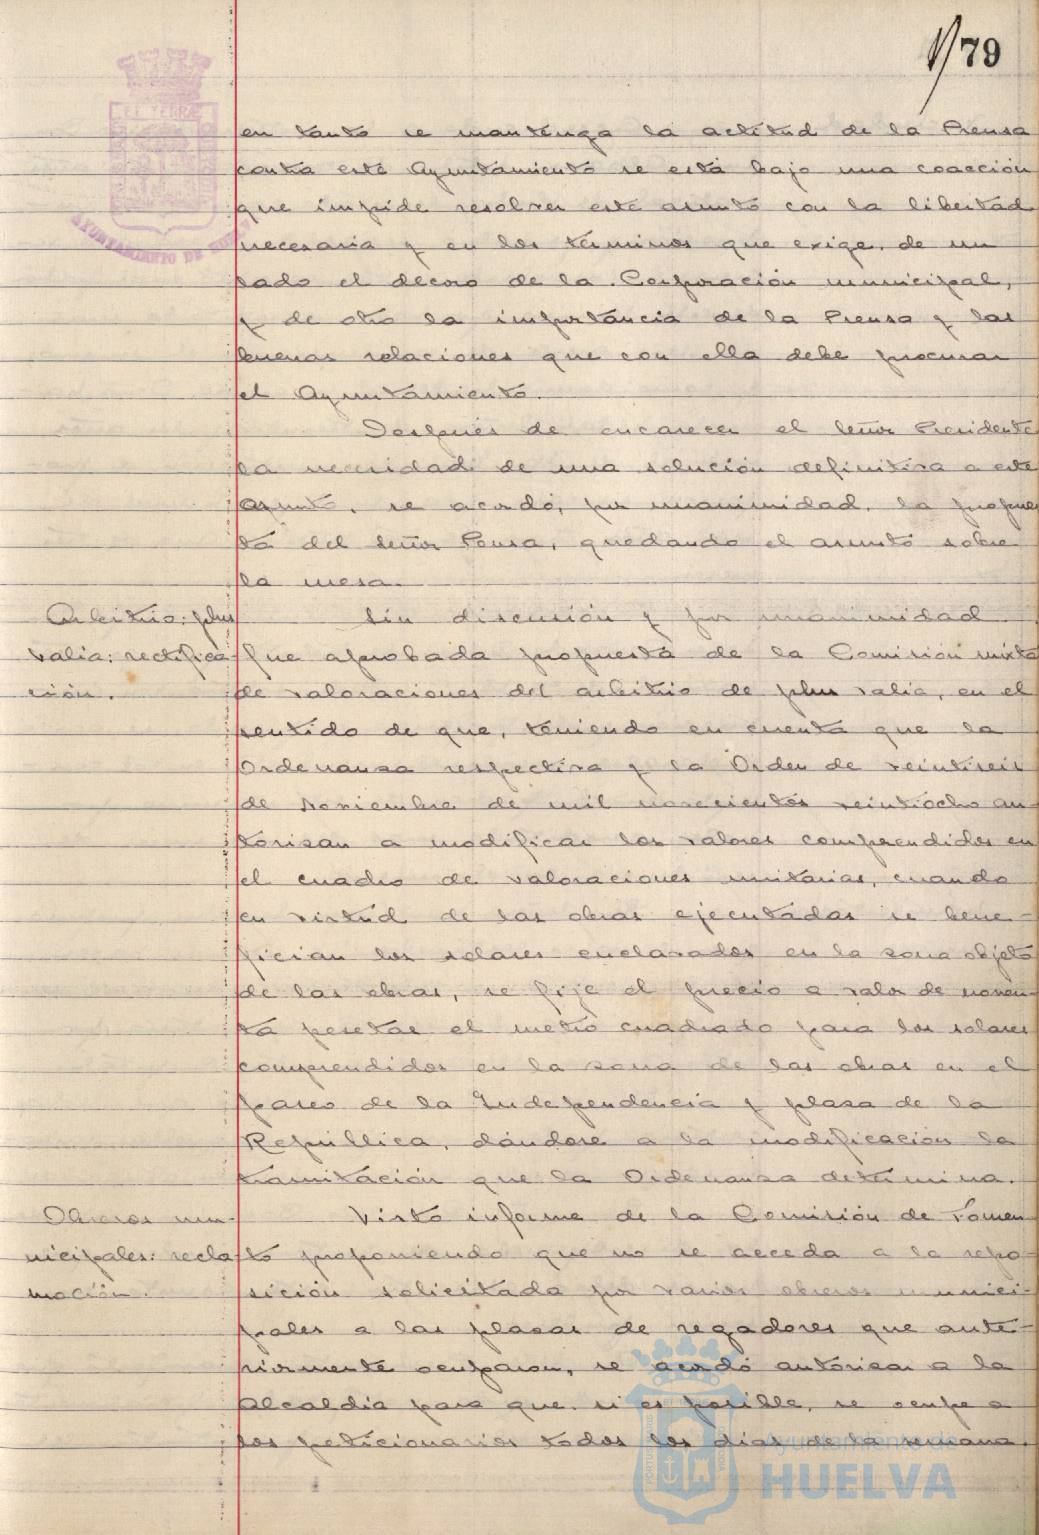 79
en tanto se mantenga la actitud de la Prensa
contra este Ayuntamiento se está bajo una coacción
que impide resolver este asunto con la libertad
necesaria y en los términos que exige, de un
lado el decoro de la Corporación municipal,
y de otro la importancia de la Prensa y las
buenas relaciones que con ella debe procurar
el Ayuntamiento.
Después de encarecer el Señor Presidente
la necesidad de una solución definitiva a este
asunto, se acordó, por unanimidad, la propues
ta del Señor Ponsa, quedando el asunto sobre
la mesa.
Arbitrio: plus
valia: rectifica
ción.
Sin discusión y por unanimidad
fue aprobada propuesta de la Comisión mixta
de valoraciones del arbitrio de plus valia, en el
sentido de que, teniendo en cuenta que la
Ordenanza respectiva y la Orden de veintiseis
de Noviembre de mil novecientos veintiocho au-
torizan a modificar los valores comprendidos en
el cuadro de valoraciones unitarias, cuando
en virtud de las obras ejecutadas se bene-
fician los solares enclavados en la zona objeto
de las obras, se fije el precio a valor de noven-
ta pesetas el metro cuadrado para los solares
comprendidos en la zona de las obras en el
paseo de la Independencia y plaza de la
República, dándose a la modificación la
tramitación que la Ordenanza determina.
Obreros mu-
nicipales: recla
mación.
Visto informe de la Comisión de Fomen
to proponiendo que no se acceda a la repo-
sición solicitada por varios obreros munici-
pales a las plazas de regadores que ante-
riormente ocuparon, se acordó autorizar a la
Alcaldía para que, si es posible, se ocupe a
los peticionarios todos los días de la semana.
AYUNTAMIENTO DE HUELVA
Ayuntamiento de
HUELVA